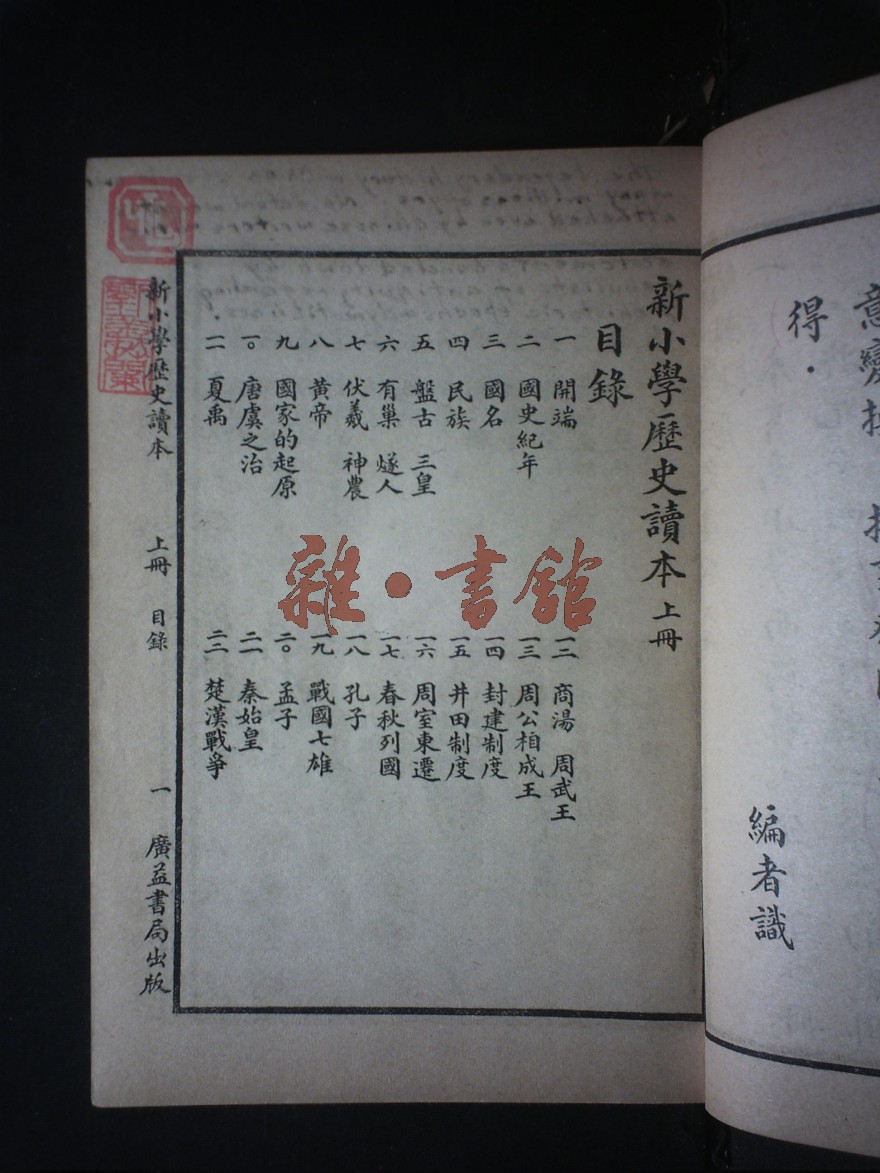 編者識
得．
新小學歷史讀本 上冊
目錄
一 開端
二 國史紀年
三 國名
四 民族
五 盤古 三皇
六 有巢 燧人
七 伏羲 神農
八 黃帝
九 國家的起原
一〇 唐虞之治
一一 夏禹
一二 商湯 周武王
一三 周公相成王
一四 封建制度
一五 井田制度
一六 周室東遷
一七 春秋列國
一八 孔子
一九 戰國七雄
二〇 孟子
二一 秦始皇
二二 楚漢戰爭
新小學歷史讀本 上冊 目錄 一 廣益書局出版
雜·書館